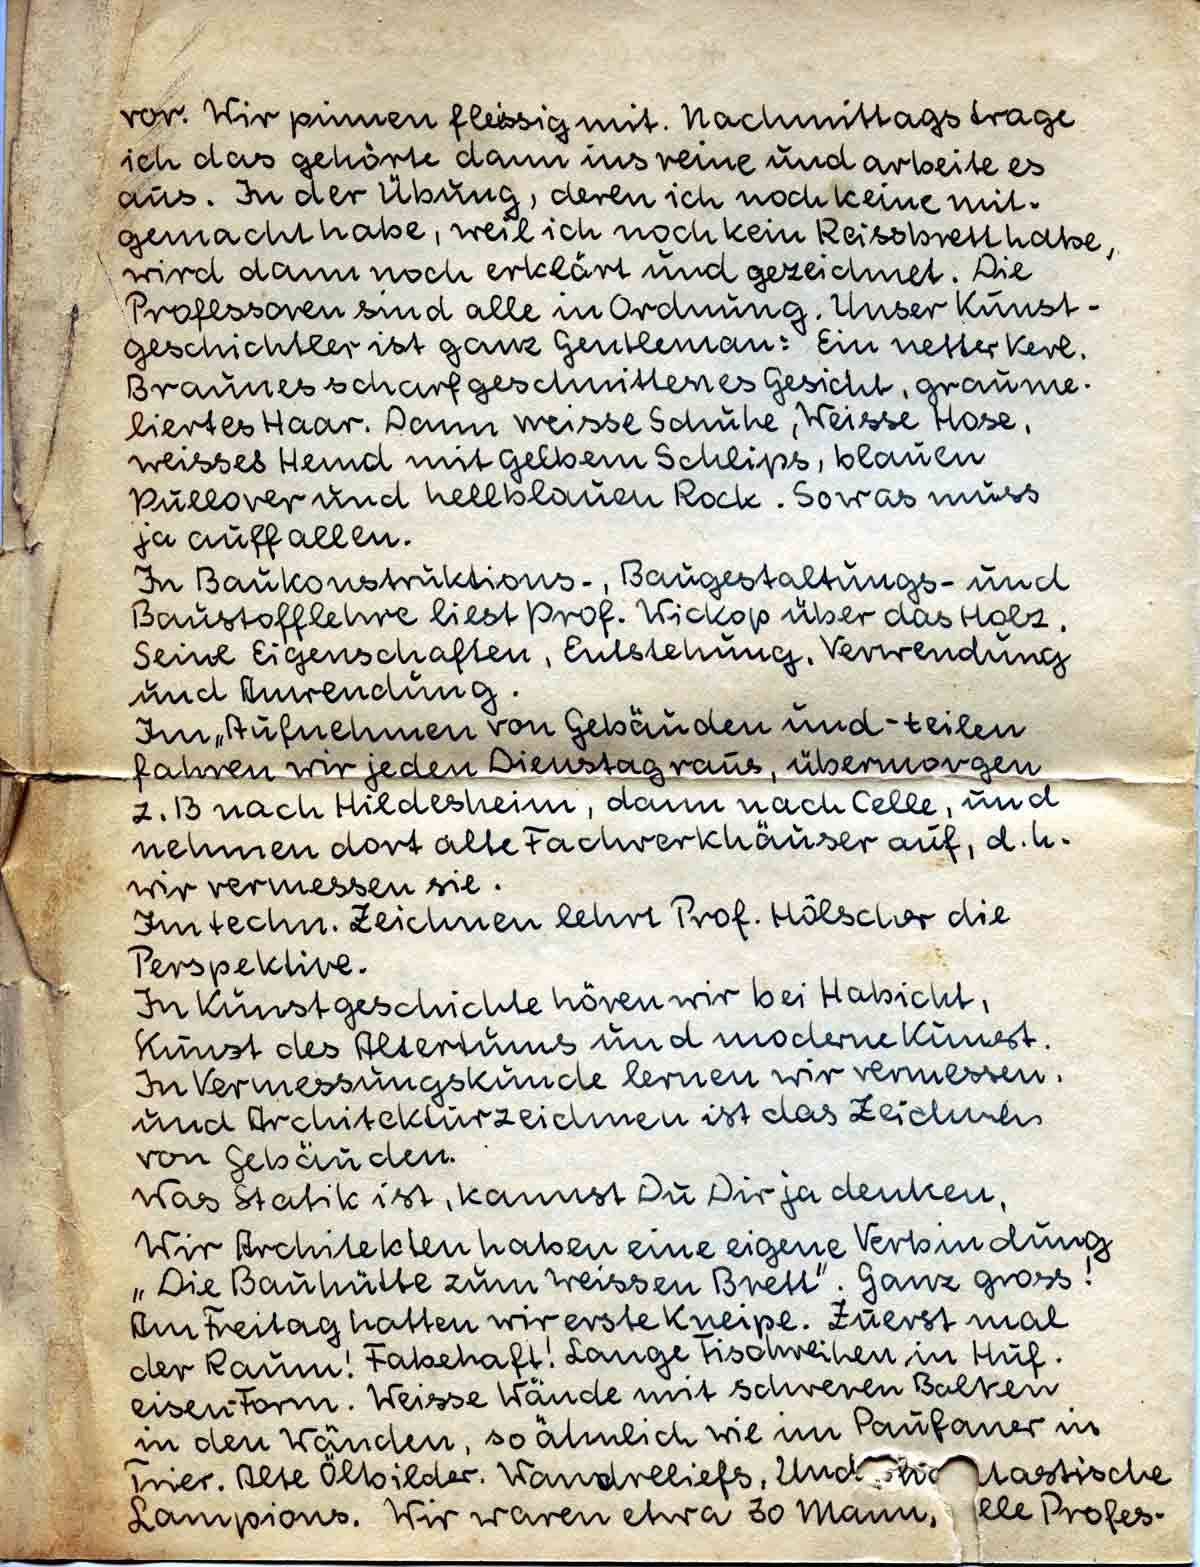 vor. Wir pinnen fleissig mit. Nachmittags trage
ich das gehörte dann ins reine und arbeite es
aus. In der Übung, deren ich noch keine mit-
gemacht habe, weil ich noch kein Reissbrett habe,
wird dann noch erklärt und gezeichnet. Die
Professoren sind alle in Ordnung. Unser Kunst-
geschichtler ist ganz Gentleman: Ein netter Kerl.
Braunes scharfgeschnittenes Gesicht, graume-
liertes Haar. Dann weisse Schuhe, Weisse Hose,
weisses Hemd mit gelbem Schlips, blauen
Pullover und hellblauen Rock. Sowas muss
ja auffallen.
In Baukonstruktions-, Baugestaltungs- und
Baustofflehre liest Prof. Wickop über das Holz.
Seine Eigenschaften, Entstehung, Verwendung
und Anwendung.
Im „Aufnehmen von Gebäuden und -teilen
fahren wir jeden Dienstag raus, übermorgen
z.B nach Hildesheim, dann nach Celle, und
nehmen dort alte Fachwerkhäuser auf, d.h.
wir vermessen sie.
Im techn. Zeichnen lehrt Prof. Hölscher die
Perspektive.
In Kunstgeschichte hören wir bei Habicht,
Kunst des Altertums und moderne Kunst.
In Vermessungskunde lernen wir vermessen.
und Architekturzeichnen ist das Zeichnen
von Gebäuden.
Was Statik ist, kannst Du Dir ja denken.
Wir Architekten haben eine eigene Verbindung
„Die Bauhütte zum Weissen Brett“. Ganz gross!
Am Freitag hatten wir erste Kneipe. Zuerst mal
der Raum! Fabehaft! Lange Tischreihen in Huf-
eisen-Form. Weisse Wände mit schweren Balken
in den Wänden, so ähnlich wie im Paufaner in
Trier. Alte Ölbilder. Wandreliefs. Und tastische
Lampions. Wir waren etwa 30 Mann, elle Profes-